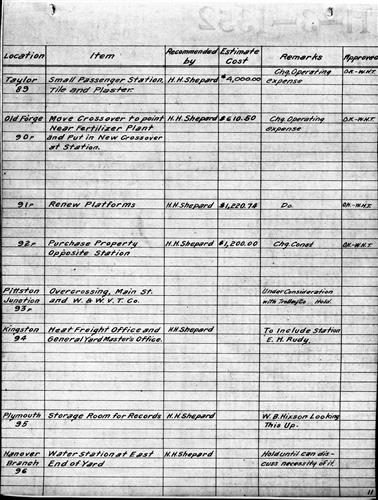 Location Item Recommended by Estimate Cost Remarks Approved
Taylor Small Passenger Station, H.H. Shepard $4,000.00 Chg. Operating O.K.-W.H.T.
89 Tile and Plaster. expense
Old Forge Move Crossover to point H.H. Shepard $610.50 Chg. Operating O.K.-W.H.T.
90r Near Fertilizer Plant expense
and Put in New Crossover
at Station.
91r Renew Platforms H.H. Shepard $1,220.74 Do. O.K.-W.H.T.
92r Purchase Property H.H. Shepard $1,200.00 Chg. Consd O.K.-W.H.T.
Opposite Station
Pittston Overcrossing, Main St. Under Consideration
Junction and W. & W.V.T. Co. with Trolley Co. Hold.
93r
Kingston Heat Freight Office and H.H. Shepard To Include Station
94 General Yard Master's Office. E.M. Rudy.
Plymouth Storage Room for Records H.H. Shepard W.B. Hixson Looking
95 This Up.
Hanover Water Station at East H.H. Shepard Hold until can dis-
Branch End of Yard cuss necessity of it.
96
11